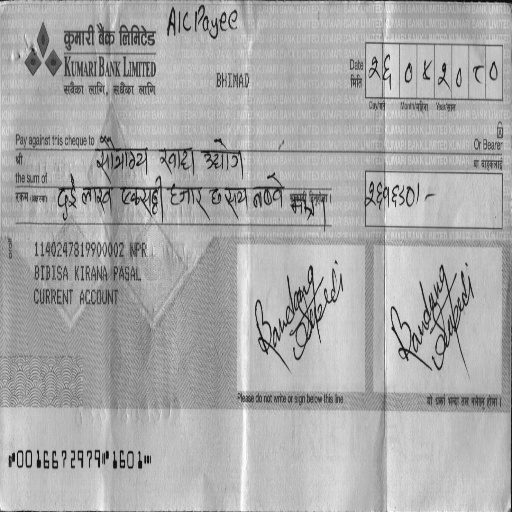 कुमारी बैंक लिमिटेड
KUMARI BANK LIMITED
सबैका लागि, सधैंका लागि
A/C Payee
BHIMAD
Date मिति
२६ ०४ २०८०
Day/गते Month/महिना Year/साल
Pay against this cheque to
Or Bearer
श्री सौभाग्य खाद्य उद्योग
वा वाहकलाई
the sum of
रकम दुई लाख एकसठ्ठी हजार छ सय नब्बे मात्र
२६१६९०/-
1140247819900002 NPR
BIBISA KIRANA PASAL
CURRENT ACCOUNT
Please do not write or sign below this line
यो धर्का भन्दा तल नलेख्नु होला ।
⑈0016672979⑈1601⑈